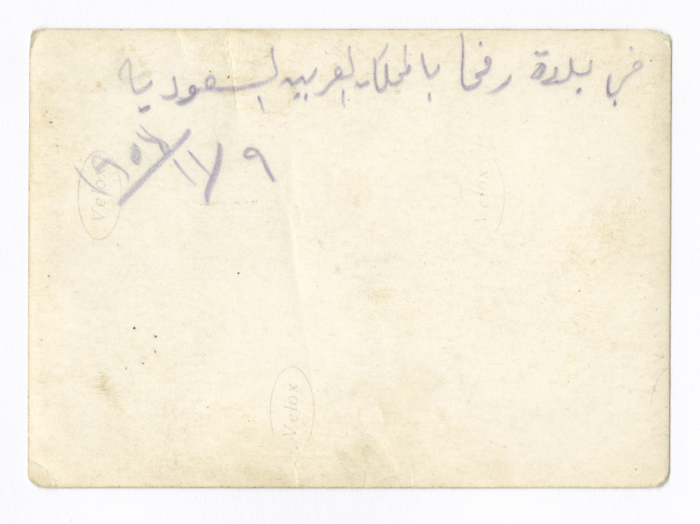 في بلدة رفحا بالمملكة العربية السعودية
Velox
Velox
Velox